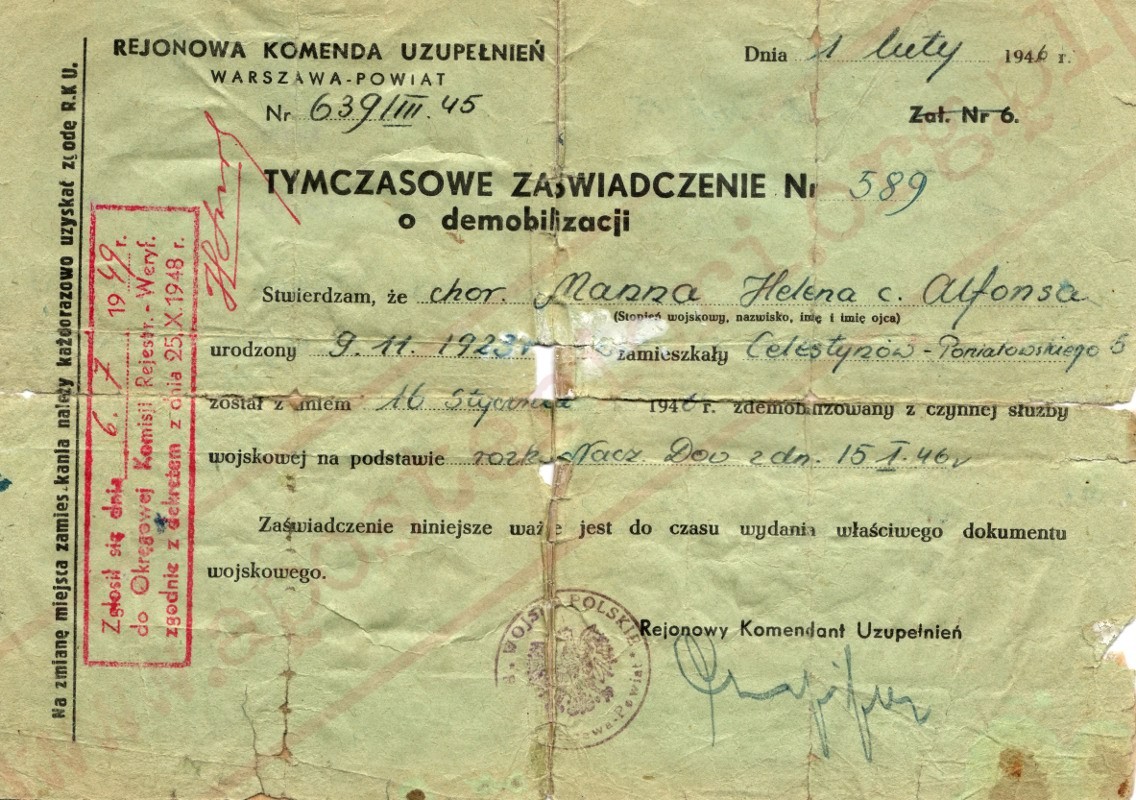 REJONOWA KOMENDA UZUPEŁNIEŃ
WARSZAWA-POWIAT
Nr 639/III.45
Dnia 1 luty 1946 r.
Zał. Nr 6.
TYMCZASOWE ZAŚWIADCZENIE Nr 589
o demobilizacji
Stwierdzam, że chor. Manna Helena c. Alfonsa
(Stopień wojskowy, nazwisko, imię i imię ojca)
urodzony 9.11.1923r zamieszkały Celestynów-Poniatowskiego 5
został z dniem 16 stycznia 1946 r. zdemobilizowany z czynnej służby
wojskowej na podstawie rozk. Nacz. Dow z dn. 15 I.46r
Zaświadczenie niniejsze ważne jest do czasu wydania właściwego dokumentu
wojskowego.
Rejonowy Komendant Uzupełnień
WOJSKO POLSKIE
Warszawa-Powiat
Na zmianę miejsca zamieszkania należy każdorazowo uzyskać zgodę R.K.U.
Zgłosił się dnia 6.7 1949 r.
do Okręgowej Komisji Rejestr.-Weryf.
zgodnie z dekretem z dnia 25.X.1948 r.